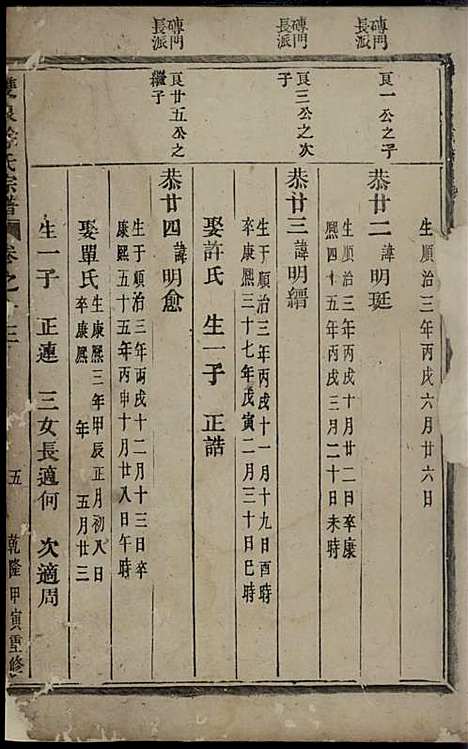 磚門長派
磚門長派
磚門長派
生順治三年丙戌六月廿六日
良一公之子
恭廿二 諱明珽
生順治三年丙戌十月廿二日卒康
熙四十五年丙戌三月二十日未時
良三公之次
子
恭廿三 諱明縉
生于順治三年丙戌十一月十九日酉時
卒康熙三十七年戊寅二月三十日巳時
娶許氏 生一子 正誥
良廿五公之
繼子
恭廿四 諱明愈
生于順治三年丙戌十二月十三日卒
康熙五十五年丙申十月廿八日午時
娶單氏 生康熙三年甲辰正月初八日
卒康熙 年 五月廿三
生一子 正連 三女長適何 次適周
氏宗譜 卷之十三 五 乾隆甲寅重修